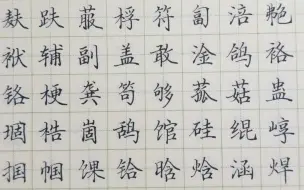 麸 跌 菔 桴 符 匐 涪 艴
袱 辅 副 盖 敢 淦 鸽 袼
铬 梗 龚 笱 够 菰 菇 蛊
堌 梏 崮 鸪 馆 硅 绲 崞
掴 帼 馃 铪 晗 焓 涵 焊